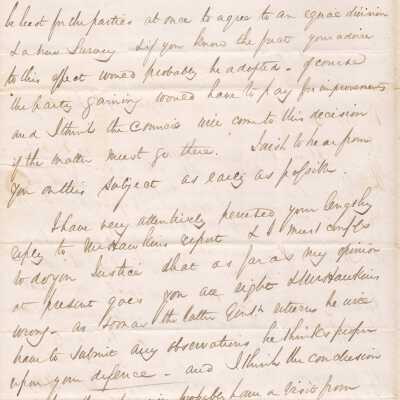 be best for the parties at once to agree to an equal division
& a new Survey & if you know the fact your advice
to this effect would probably be adopted - of course
the party gaining would have to pay for improvements
and I think the Commrs will come to this decision
if the matter must go there. I wish to hear from
you on this subject as early as possible.
I have very attentively perused your lengthy
reply to Mr Hawkins report & I must confess
to do you Justice that as far as my opinion
at present goes you are right & Mr Hawkins
wrong - as soon as the latter Gentn returns he will
have to submit any observations he thinks proper
upon your defence - and I think the conclusion
probably have a visit from